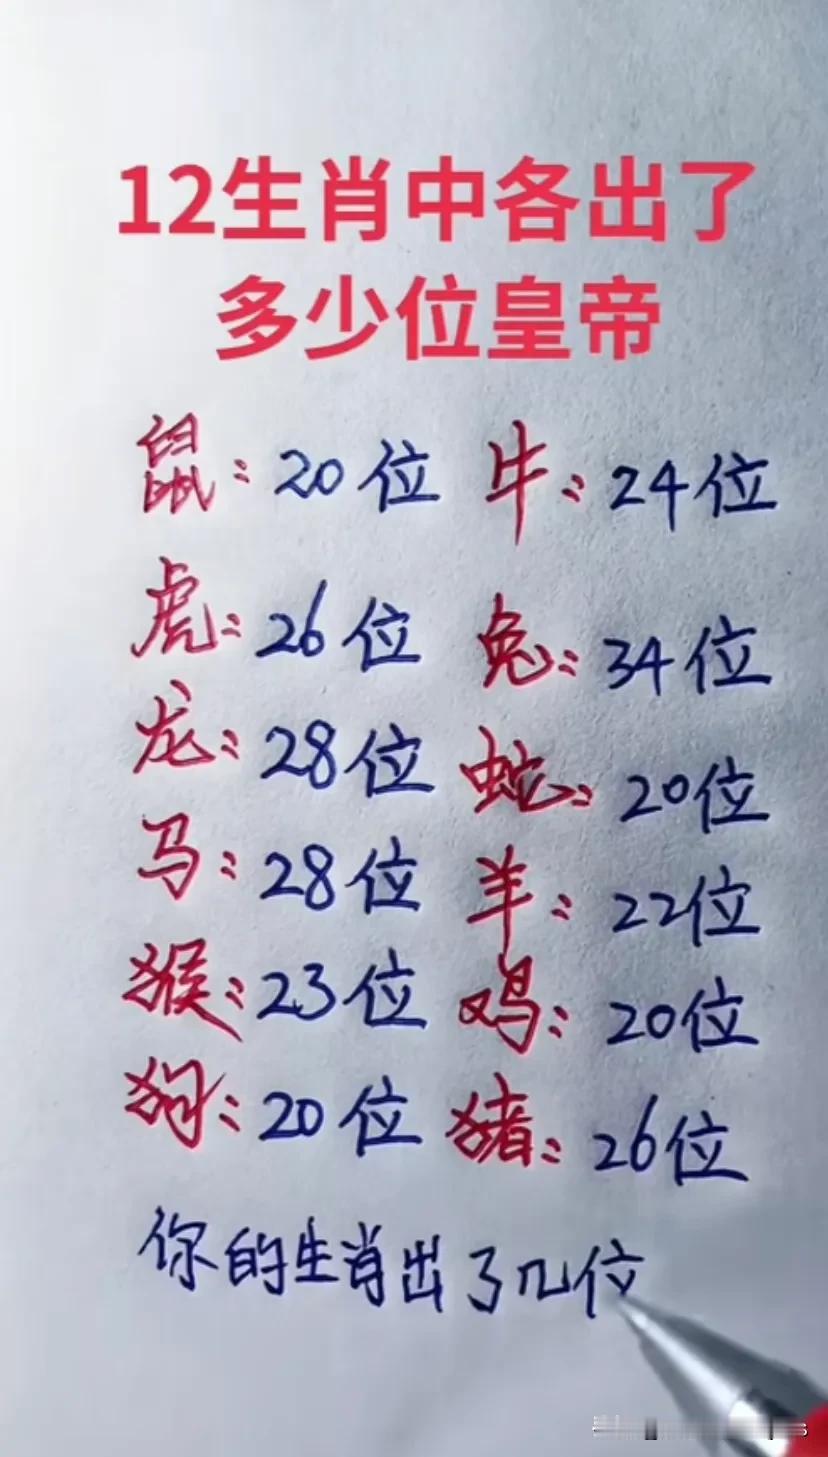 12生肖中各出了
多少位皇帝
鼠：20位 牛：24位
虎：26位 兔：34位
龙：28位 蛇：20位
马：28位 羊：22位
猴：23位 鸡：20位
狗：20位 猪：26位
你的生肖出了几位